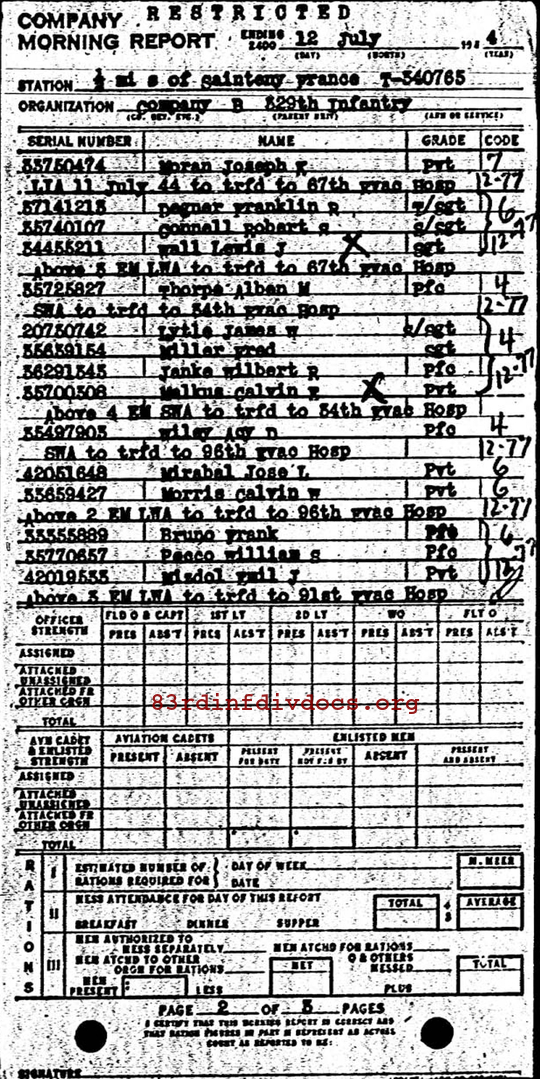 RESTRICTED
COMPANY
MORNING REPORT ENDING 2400 12 July 194 4
(DAY) (MONTH) (YEAR)
STATION ½ mi s of Sainteny France T-340765
ORGANIZATION Company B 329th Infantry
(CO. DET. ETC.) (PARENT UNIT) (ARM OR SERVICE)
SERIAL NUMBER NAME GRADE CODE
33750474 Moran Joseph K Pvt 7
LIA 11 July 44 to trfd to 67th Evac Hosp 12-77
37141213 Degner Franklin R T/Sgt
35740107 Connell Robert S S/Sgt 6
34455211 Wall Lewis J X Sgt 12-77
Above 3 EM LWA to trfd to 67th Evac Hosp
35725827 Thorpe Alben M Pfc 4
SWA to trfd to 34th Evac Hosp 12-77
20750742 Lytle James W S/Sgt
35639154 Miller Fred Sgt 4
36291343 Janke Wilbert R Pfc 12-77
35700308 Malkus Calvin E X Pvt
Above 4 EM SWA to trfd to 34th Evac Hosp
35497903 Wiley Acy D Pfc 4
SWA to trfd to 96th Evac Hosp 12-77
42051648 Mirabal Jose L Pvt 6
33659427 Morris Calvin W Pvt 6
Above 2 EM LWA to trfd to 96th Evac Hosp 12-77
33355889 Bruno Frank Pfc 6
35770657 Pacco William S Pfc
42019533 Misdol Emil J Pvt 12-77
Above 3 EM LWA to trfd to 91st Evac Hosp
OFFICER STRENGTH FLD O & CAPT 1ST LT 2D LT WO FLT O
PRES ABS'T PRES ABS'T PRES ABS'T PRES ABS'T PRES ABS'T
ASSIGNED
ATTACHED UNASSIGNED
ATTACHED FR OTHER ORGN
83rdinfdivdocs.org
TOTAL
AVN CADET & ENLISTED STRENGTH AVIATION CADETS ENLISTED MEN
PRESENT ABSENT PRESENT FOR DUTY PRESENT NOT FOR DY ABSENT PRESENT AND ABSENT
ASSIGNED
ATTACHED UNASSIGNED
ATTACHED FR OTHER ORGN
TOTAL
RATIONS
I ESTIMATED NUMBER OF RATIONS REQUIRED FOR DAY OF WEEK
DATE
II MESS ATTENDANCE FOR DAY OF THIS REPORT TOTAL AVERAGE
BREAKFAST DINNER SUPPER
III MEN AUTHORIZED TO MESS SEPARATELY MEN ATCHD FOR RATIONS
MEN ATCHD TO OTHER ORGN FOR RATIONS NET O & OTHERS MESSED TOTAL
MEN PRESENT LESS PLUS
PAGE 2 OF 3 PAGES
I CERTIFY THAT THIS MORNING REPORT IS CORRECT AND
THAT RATION FIGURES IN PART III REPRESENT AN ACTUAL
COUNT AS REPORTED TO ME:
SIGNATURE